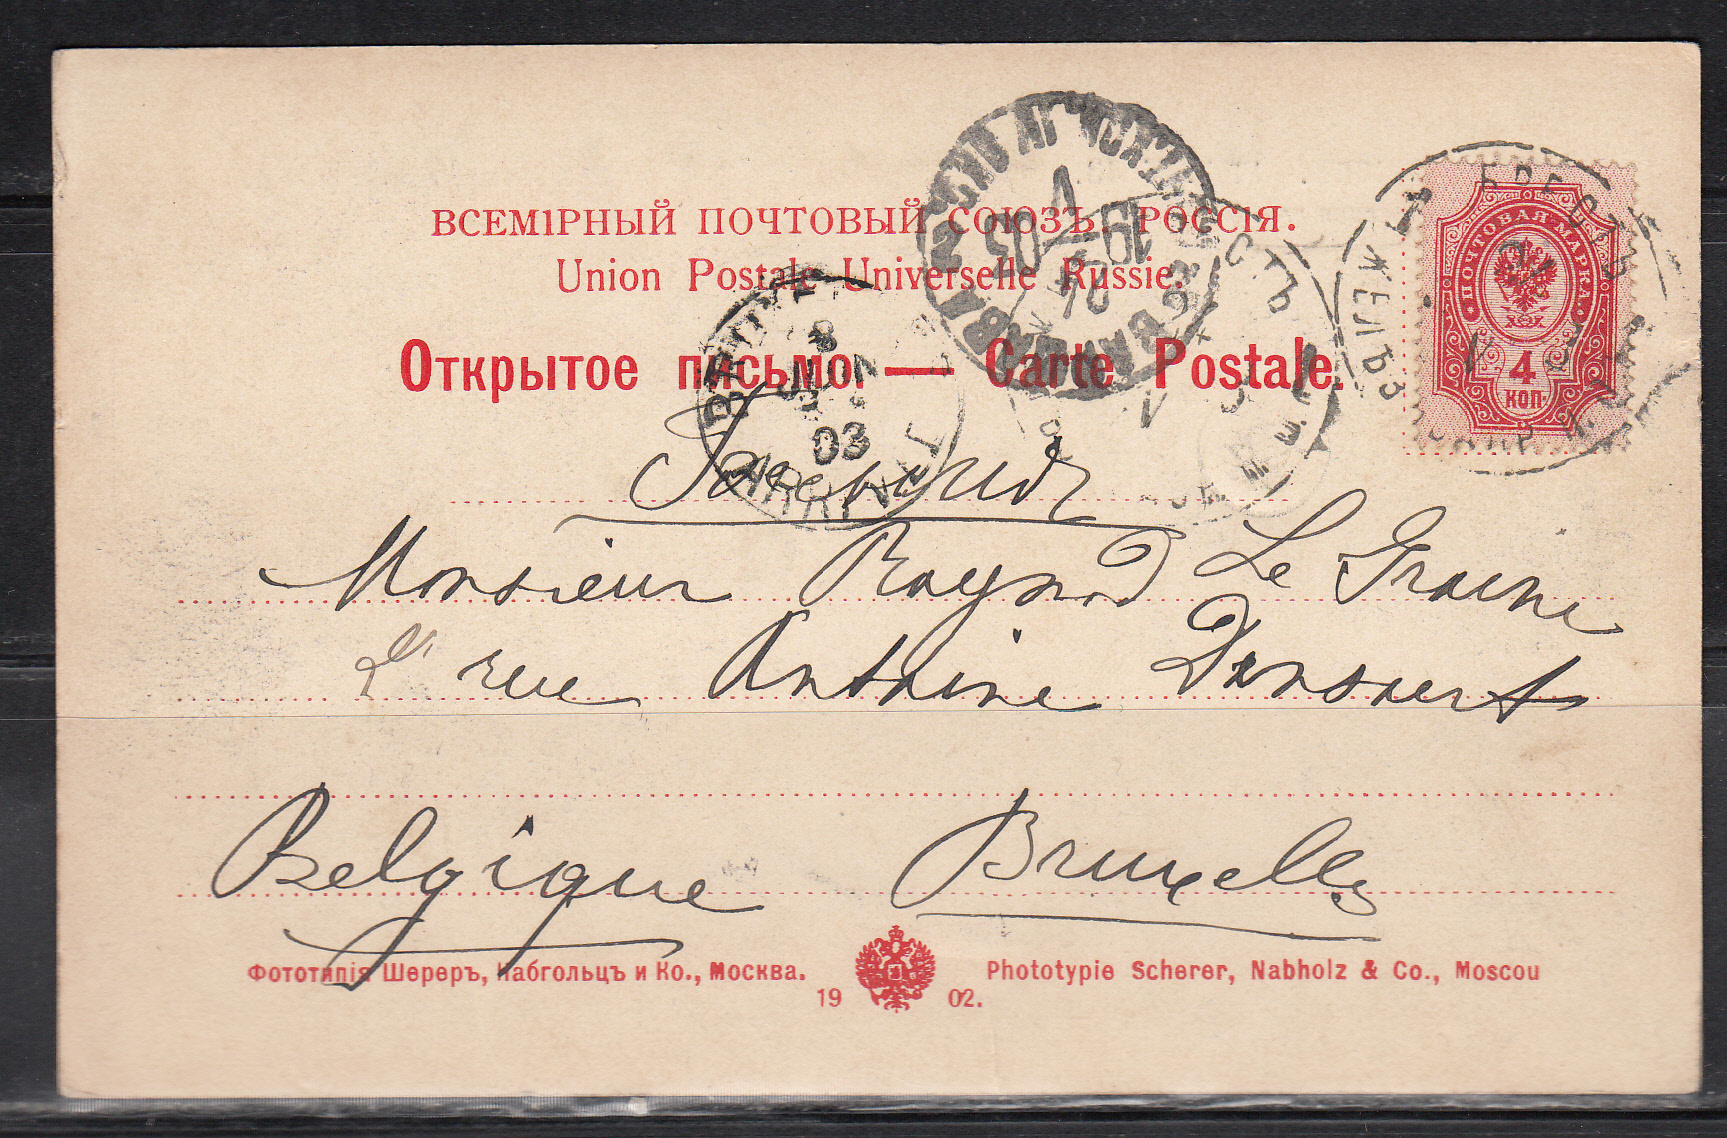 ВСЕМІРНЫЙ ПОЧТОВЫЙ СОЮЗЪ. РОССІЯ.
Union Postale Universelle Russie.
Открытое письмо. — Carte Postale.
ПОЧТОВАЯ МАРКА
4
КОП.
БРЕСТЪ
ЖЕЛѢЗ
1903
8
JUIN
03
ARRIVÉE
Monsieur Le Graine
rue Antoine Dansaert
Belgique Bruxelles
Фототипія Шереръ, Набгольцъ и Ко., Москва.
1902.
Phototypie Scherer, Nabholz & Co., Moscou